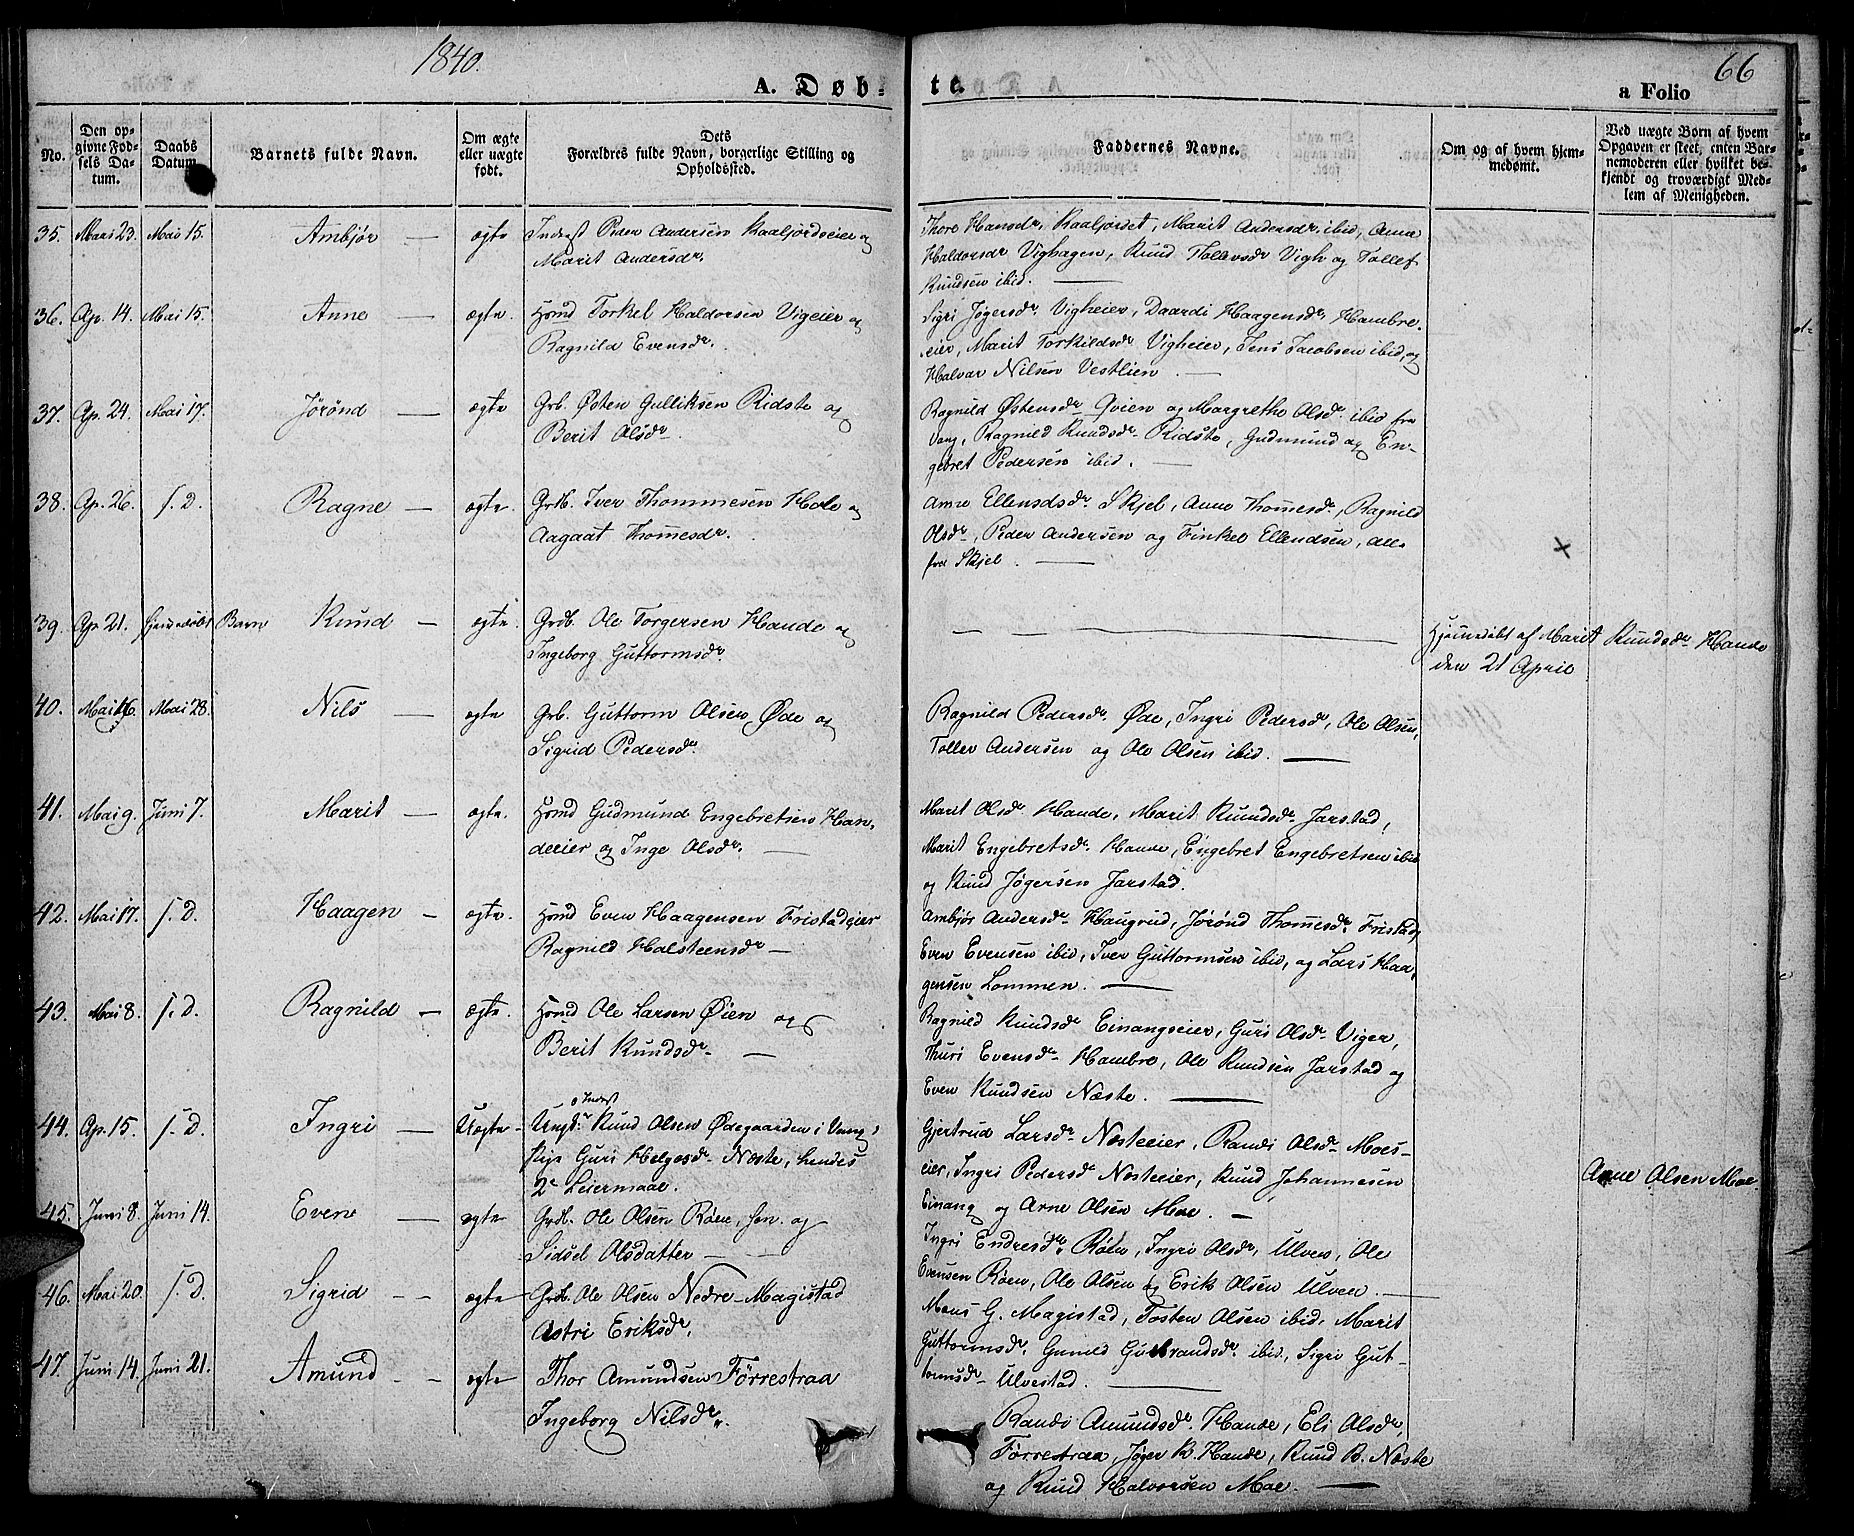 1840.
A. Døb-
te.
66
a Folio
No.
Den op-
givne Fød-
sels Da-
tum.
Daabs
Datum
Barnets fulde Navn.
Om ægte
eller uægte
født.
Dets
Forældres fulde Navn, borgerlige Stilling og
Opholdssted.
Faddernes Navne.
Om og af hvem hjem-
medømt.
Ved uægte Børn af hvem
Opgaven er skeet, enten Bar-
nemoderen eller hvilket be-
kjendt og troværdigt Med-
lem af Menigheden.
35. Mars 23. Mai 15. Ambjør — ægte Inderst Peder Andersen Kaaljordseier og
Marit Andersdr.
Thore Hansdr. Kaaljordet, Marit Andersdr. ibid, Anne
Haldorsdr Vighagen, Knud Tollevsdr Vigh og Tollef
Knudsen ibid. —
36. Ap. 14. Mai 15. Anne — ægte. Hmd Torkel Haldorsen Vigeier og
Ragnild Evensdr.
Sigri Jøgersdr. Vigheier, Daardi Haagensdr. Hambre-
eier, Marit Torkildsdr. Vigheier, Jens Jacobsen ibid, og
Halvar Nilsen Vestlien. —
37. Ap. 24. Mai 17. Jørønd — ægte Grb. Østen Gulliksen Ridste og
Berit Olsdr.
Ragnild Østensdr Qvien og Margrethe Olsdr. ibid fra
Vang, Ragnild Knudsdr. Ridste, Gudmund og En-
gebret Pedersen ibid. —
38. Ap. 26. s. D. Ragne — ægte. Grdb. Iver Thommesen Hole og
Aagaat Thomesdr.
Anne Ellendsdr. Skjel, Anne Thomesdr., Ragnild
Olsdr., Peder Andersen og Finkel Ellendsen, alle
fra Skjel. —
39. Ap 21. hjemmedøbt Barn Knud — ægte. Grdb. Ole Torgersen Hande og
Ingeborg Guttormsdr.
Hjemmedøbt af Marit Knudsdr. Hande
den 21 April
40. Mai 16. Mai 28. Nils — ægte Grb. Guttorm Olsen Øde og
Sigrid Pedersdr.
Ragnild Pedersdr. Øde, Ingri Pedersdr, Ole Olsen,
Tollev Andersen og Ole Olsen ibid. —
41. Mai 9. Juni 7. Marit — ægte. Hmd Gudmund Engebretsen Han-
deeier og Inge Olsdr. —
Marit Olsdr. Hande, Marit Knudsdr. Jarstad,
Marit Engebretsdr. Hande, Engebret Engebretsen ibid
og Knud Jøgersen Jarstad.
42. Mai 17. s. D. Haagen — ægte. Hmd Even Haagensen Fristadeier
Ragnild Halsteensdr —
Ambjør Andersdr. Haugrud, Jørønd Thomesdr. Fristad,
Even Evensen ibid, Iver Guttormsen ibid, og Lars Haa-
gensen Lommen. —
43. Mai 8. s. D. Ragnild — ægte. Hmd Ole Larsen Øien og
Berit Knudsdr. —
Ragnild Knudsdr Einangseier, Guri Olsdr. Viger,
Thuri Evensdr. Hambre, Ole Knudsen Jarstad og
Even Knudsen Næste. —
44. Ap. 15. s. D. Ingri — Uægte — Ungk. Inderst Knud Olsen Ødegaarden i Vang,
Pige Guri Helgesdr. Næste, hendes
2t Leiermaal.
Gjertrud Larsdr. Næsteeier, Randi Olsdr. Moes-
eier, Ingri Pedersdr Næsteeier, Knud Johannesen
Einang og Arne Olsen Moe. —
Arne Olsen Moe.
45. Juni 8. Juni 14. Even — ægte Grdb. Ole Olsen Røen, sen. og
Sidsel Olsdatter —
Ingri Endresdr. Røen, Ingri Olsdr. Ulven, Ole
Evensen Røen, Ole Olsen og Erik Olsen Ulven. —
46. Mai 20. s. D. Sigrid — ægte Grdb. Ole Olsen Nedre-Magistad
Astri Eriksdr.
Mons G. Magistad, Tosten Olsen ibid. Marit
Guttormsdr. Gunild Gulbrandsdr. ibid., Sigri Gut-
tormsdr. Ulvestad. —
47. Juni 14. Juni 21. Amund — ægte Thor Amundsen Førrestraa
Ingeborg Nilsdr.
Randi Amundsdr. Hande, Eli Olsdr,
Førrestraa, Jøger K. Hande, Knud B. Næste
og Knud Halvorsen Moe. —